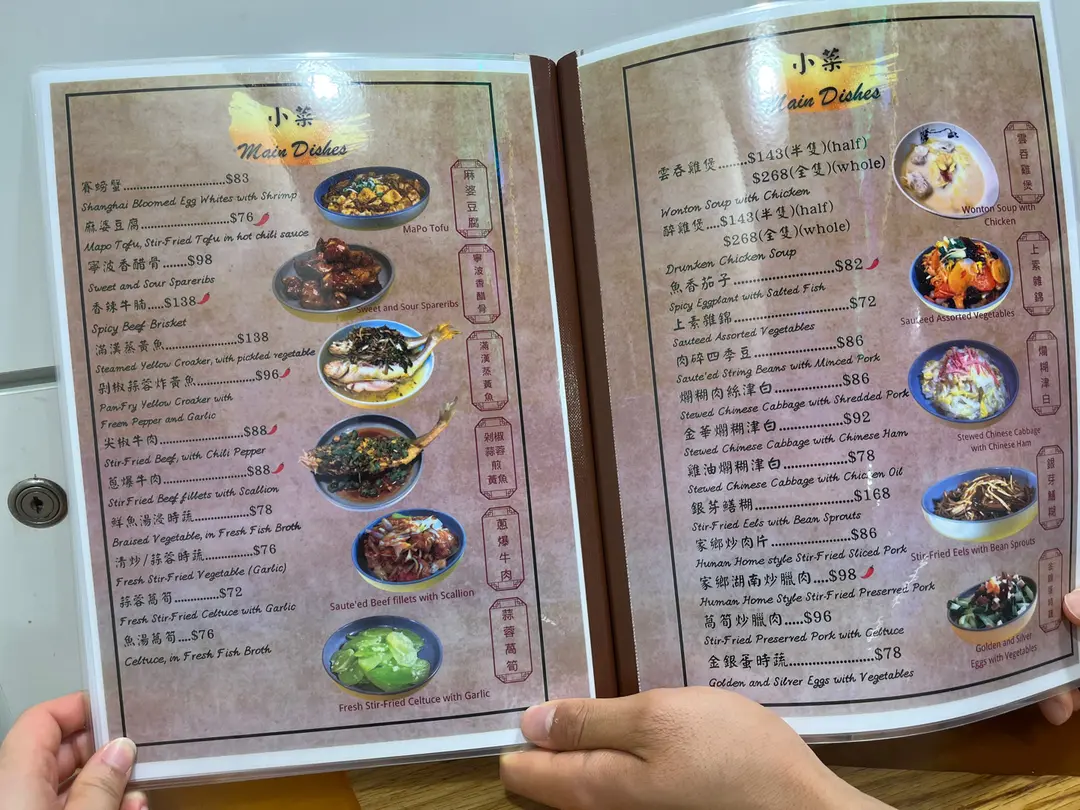 小菜
Main Dishes
賽螃蟹..............................$83
Shanghai Bloomed Egg Whites with Shrimp
麻婆豆腐..........................$76
Mapo Tofu, Stir-Fried Tofu in hot chili sauce
寧波香醋骨.......$98
Sweet and Sour Spareribs
香辣牛腩....$138
Spicy Beef Brisket
滿漢蒸黃魚......................$138
Steamed Yellow Croaker, with pickled vegetable
剁椒蒜蓉炸黃魚...................$96
Pan-Fry Yellow Croaker with
Freen Pepper and Garlic
尖椒牛肉.....................$88
Stir-Fried Beef, with Chili Pepper
蔥爆牛肉......................$88
StirFried Beef fillets with Scallion
鮮魚湯浸時蔬................$78
Braised Vegetable, in Fresh Fish Broth
清炒/蒜蓉時蔬..............$76
Fresh Stir-Fried Vegetable (Garlic)
蒜蓉萵筍..............$72
Fresh Stir-Fried Celtuce with Garlic
魚湯萵筍....$76
Celtuce, in Fresh Fish Broth
麻婆豆腐
MaPo Tofu
寧波香醋骨
Sweet and Sour Spareribs
滿漢蒸黃魚
剁椒蒜蓉煎黃魚
蔥爆牛肉
Saute'ed Beef fillets with Scallion
蒜蓉萵筍
Fresh Stir-Fried Celtuce with Garlic
小菜
Main Dishes
雲吞雞煲........$143(半隻)(half)
$268(全隻)(whole)
Wonton Soup with Chicken
醉雞煲....$143(半隻)(half)
$268(全隻)(whole)
Drunken Chicken Soup
魚香茄子........................$82
Spicy Eggplant with Salted Fish
上素雜錦........................$72
Sauteed Assorted Vegetables
肉碎四季豆....................$86
Saute'ed String Beans with Minced Pork
爛糊肉絲津白.................$86
Stewed Chinese Cabbage with Shredded Pork
金華爛糊津白.................$92
Stewed Chinese Cabbage with Chinese Ham
雞油爛糊津白.................$78
Stewed Chinese Cabbage with Chicken Oil
銀芽鱔糊......................$168
Stir-Fried Eels with Bean Sprouts
家鄉炒肉片....................$86
Hunan Home style Stir-Fried Sliced Pork
家鄉湖南炒臘肉....$98
Human Home Style Stir-Fried Preserved Pork
萵筍炒臘肉.....$96
Stir-Fried Preserved Pork with Celtuce
金銀蛋時蔬......................$78
Golden and Silver Eggs with Vegetables
雲吞雞煲
Wonton Soup with
Chicken
上素雜錦
Sauteed Assorted Vegetables
Stewed Chinese Cabbage
with Chinese Ham
Stir-Fried Eels with Bean Sprouts
Golden and Silver
Eggs with Vegetables